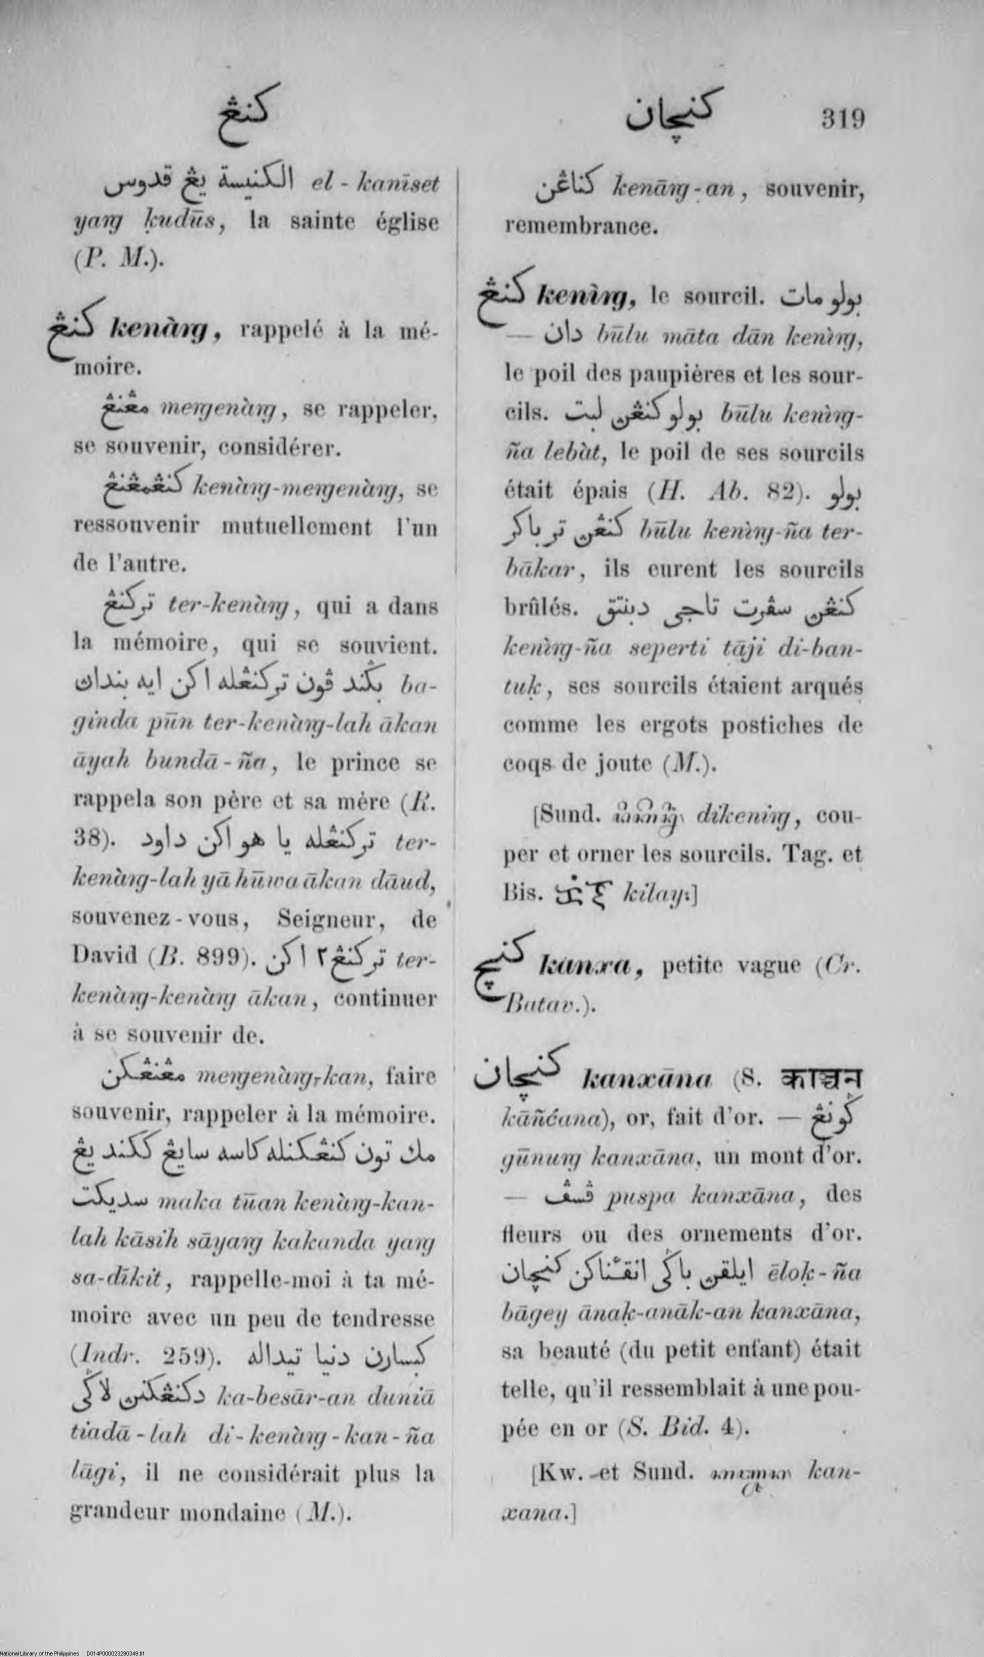 كنڠ
كنچان 319
الكنيسة يڠ قدوس el-kanīset
yaŋ ḳudūs, la sainte église
(P. M.).
كنڠ kenàŋ, rappelé à la mé-
moire.
مڠنڠ meŋenàŋ, se rappeler,
se souvenir, considérer.
كنڠمڠنڠ kenàŋ-meŋenàŋ, se
ressouvenir mutuellement l'un
de l'autre.
تركنڠ ter-kenàŋ, qui a dans
la mémoire, qui se souvient.
بڬند ڤون تركنڠله اكن ايه بنداڽ ba-
ginda pūn ter-kenàŋ-lah ākan
āyah bundā-ña, le prince se
rappela son père et sa mère (R.
38). تركنڠله يا هو اكن داود ter-
kenàŋ-lah yā hūwa ākan dāud,
souvenez-vous, Seigneur, de
David (B. 899). تركنڠ٢ اكن ter-
kenàŋ-kenàŋ ākan, continuer
à se souvenir de.
مڠنڠكن meŋenàŋ-kan, faire
souvenir, rappeler à la mémoire.
مك تون كنڠكنله كاسه سايڠ ككند يڠ
سديكت maka tūan kenàŋ-kan-
lah kāsih sāyaŋ kakanda yaŋ
sa-dīkit, rappelle-moi à ta mé-
moire avec un peu de tendresse
(Indr. 259). كبسارن دنيا تيداله
دكنڠكنڽ لاڬي ka-besār-an duniā
tiadā-lah di-kenàŋ-kan-ña
lāgi, il ne considérait plus la
grandeur mondaine (M.).
كناڠن kenāŋ-an, souvenir,
remembrance.
كنڠ kenìŋ, le sourcil. بولو مات
— دان būlu māta dān kenìŋ,
le poil des paupières et les sour-
cils. بولو كنڠڽ لبت būlu kenìŋ-
ña lebàt, le poil de ses sourcils
était épais (H. Ab. 82). بولو
كنڠڽ تر باكر būlu kenìŋ-ña ter-
bākar, ils eurent les sourcils
brûlés. كنڠڽ سڤرت تاجي دبنتق
kenìŋ-ña seperti tāji di-ban-
tuḳ, ses sourcils étaient arqués
comme les ergots postiches de
coqs de joute (M.).
[Sund. dikeniŋ, cou-
per et orner les sourcils. Tag. et
Bis. kilay.]
كنچ kanxa, petite vague (Cr.
Batav.).
كنچان kanxāna (S. काञ्चन
kāñćana), or, fait d'or. — ڬونڠ
gūnuŋ kanxāna, un mont d'or.
— ڤسڤ puspa kanxāna, des
fleurs ou des ornements d'or.
ايلقڽ باڬي انقـناكن كنچان ēloḳ-ña
bāgey ānaḳ-anāk-an kanxāna,
sa beauté (du petit enfant) était
telle, qu'il ressemblait à une pou-
pée en or (S. Bid. 4).
[Kw. et Sund. kan-
xana.]
National Library of the Philippines